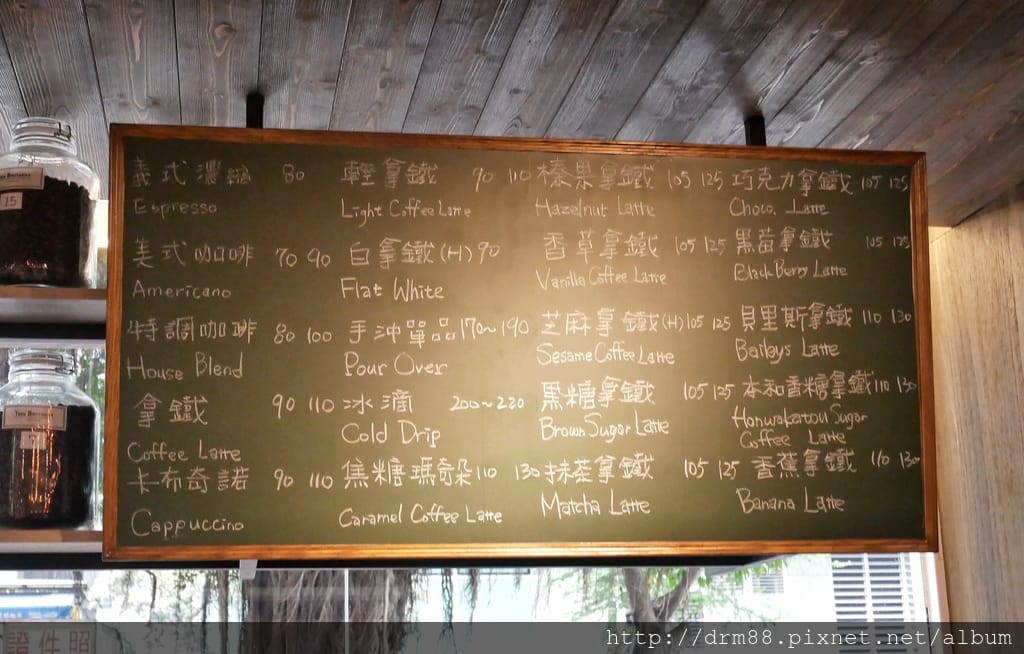 義式濃縮 80
Espresso
美式咖啡 70 90
Americano
特調咖啡 80 100
House Blend
拿鐵 90 110
Coffee Latte
卡布奇諾 90 110
Cappuccino
輕拿鐵 90 110
Light Coffee Latte
白拿鐵(H) 90
Flat White
手沖單品 170~190
Pour Over
冰滴 200~220
Cold Drip
焦糖瑪奇朵 110 130
Caramel Coffee Latte
榛果拿鐵 105 125
Hazelnut Latte
香草拿鐵 105 125
Vanilla Coffee Latte
芝麻拿鐵(H) 105 125
Sesame Coffee Latte
黑糖拿鐵 105 125
Brown Sugar Latte
抹茶拿鐵 105 125
Matcha Latte
巧克力拿鐵 105 125
Choco. Latte
黑莓拿鐵 105 125
Black Berry Latte
貝里斯拿鐵 110 130
Baileys Latte
本和香糖拿鐵 110 130
Honwakatou Sugar
Coffee Latte
香蕉拿鐵 110 130
Banana Latte
15
證件照
http://drm88.pixnet.net/album